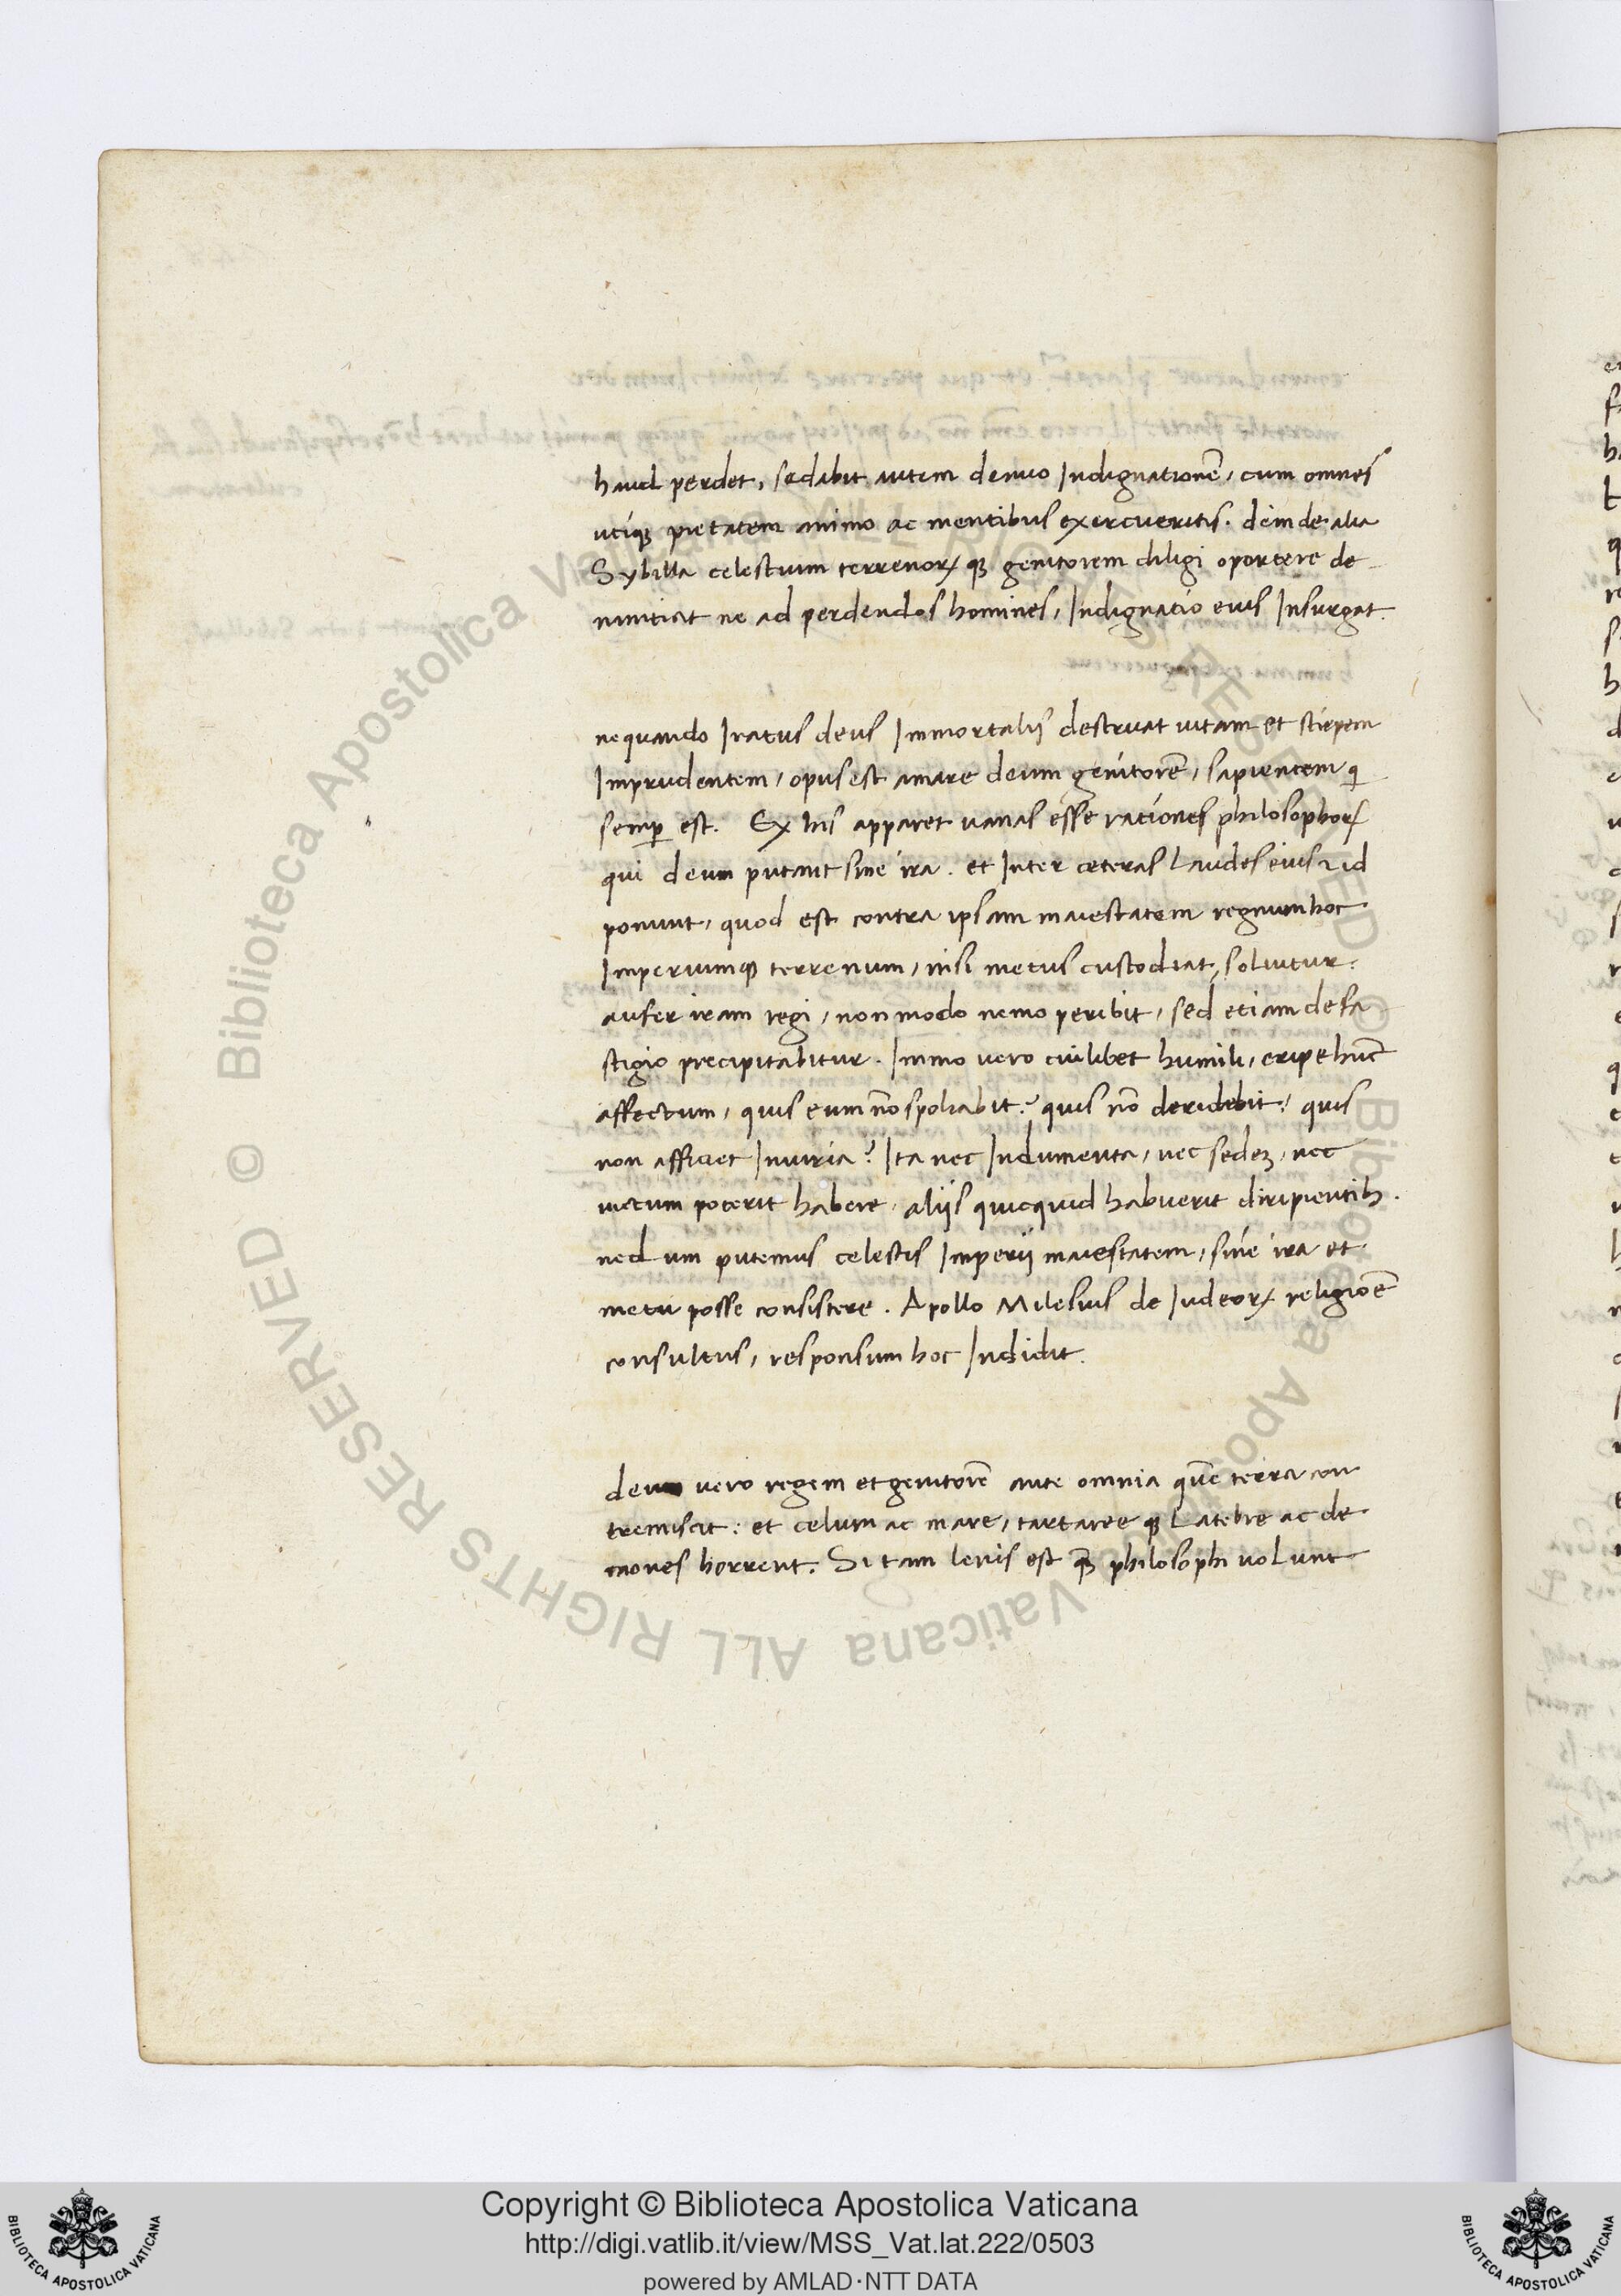 haud perdet, sedabit autem denuo Indignationē, cum omnes
utiqȝ pietatem animo ac mentibus exercueritis. deinde alia
Sybilla celestium terrenoꝝ qȝ genitorem diligi oportere de-
nuntiat ne ad perdendos homines, Indignatio eius Insurgat.
nequando Iratus deus Immortalis destruat uitam et stirpem
Imprudentem, opus est amare deum genitorē, sapientem q
semꝑ est. Ex his apparet uanas esse rationes philosophoꝝ
qui deum putant sine ira. et Inter ceteras Laudes eius id
ponunt, quod est contra ipsam maiestatem regnum hoc
Imperiumqȝ terrenum, nisi metus custodiat, soluitur.
aufer iram regi, non modo nemo peribit, sed etiam de fa
stigio precipitabitur. Immo uero cuilibet humili, eripe hūc
affectum, quis eum nō spoliabit? quis nō deridebit? quis
non afficiet Iniuria? Ita nec Indumenta, nec sedeȝ, nec
uictum poterit habere, aliis quicquid habuerit diripientib.
ned um putemus celestis Imperii maiestatem, sine ira et
metu posse consistere. Apollo Milesius de Iudeoꝝ religiōe
consultus, responsum hoc Indidit.
deum uero regem et genitorē ante omnia quē terra con
tremiscit: et celum ac mare, tartaree qȝ Latebre ac de
mones horrent. Si tam lenis est qȝ philosophi uoLunt
Copyright © Biblioteca Apostolica Vaticana
http://digi.vatlib.it/view/MSS_Vat.lat.222/0503
powered by AMLAD·NTT DATA
BIBLIOTECA APOSTOLICA VATICANA
BIBLIOTECA APOSTOLICA VATICANA
© Biblioteca Apostolica Vaticana ALL RIGHTS RESERVED
© Biblioteca Apostolica Vaticana ALL RIGHTS RESERVED